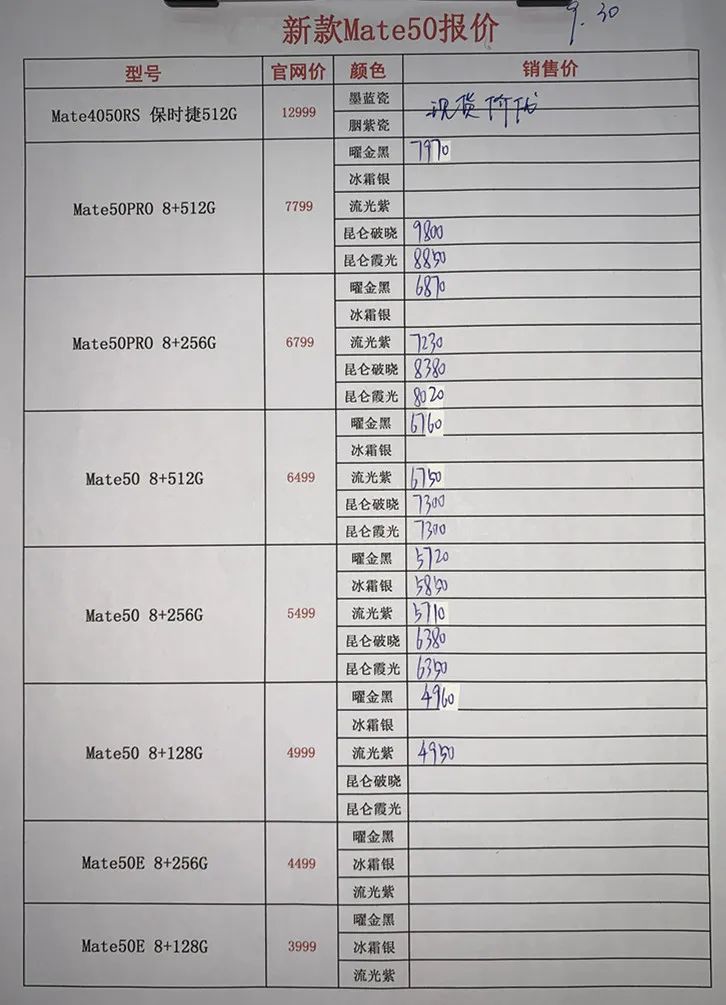 9.30
新款Mate50报价
型号 官网价 颜色 销售价
Mate4050RS 保时捷512G 12999 墨蓝瓷 现货价优
胭紫瓷
Mate50PRO 8+512G 7799 曜金黑 7970
冰霜银
流光紫
昆仑破晓 9800
昆仑霞光 8850
Mate50PRO 8+256G 6799 曜金黑 6870
冰霜银
流光紫 7230
昆仑破晓 8380
昆仑霞光 8020
Mate50 8+512G 6499 曜金黑 6760
冰霜银
流光紫 6750
昆仑破晓 7300
昆仑霞光 7300
Mate50 8+256G 5499 曜金黑 5720
冰霜银 5850
流光紫 5710
昆仑破晓 6380
昆仑霞光 6350
Mate50 8+128G 4999 曜金黑 4960
冰霜银
流光紫 4950
昆仑破晓
昆仑霞光
Mate50E 8+256G 4499 曜金黑
冰霜银
流光紫
Mate50E 8+128G 3999 曜金黑
冰霜银
流光紫